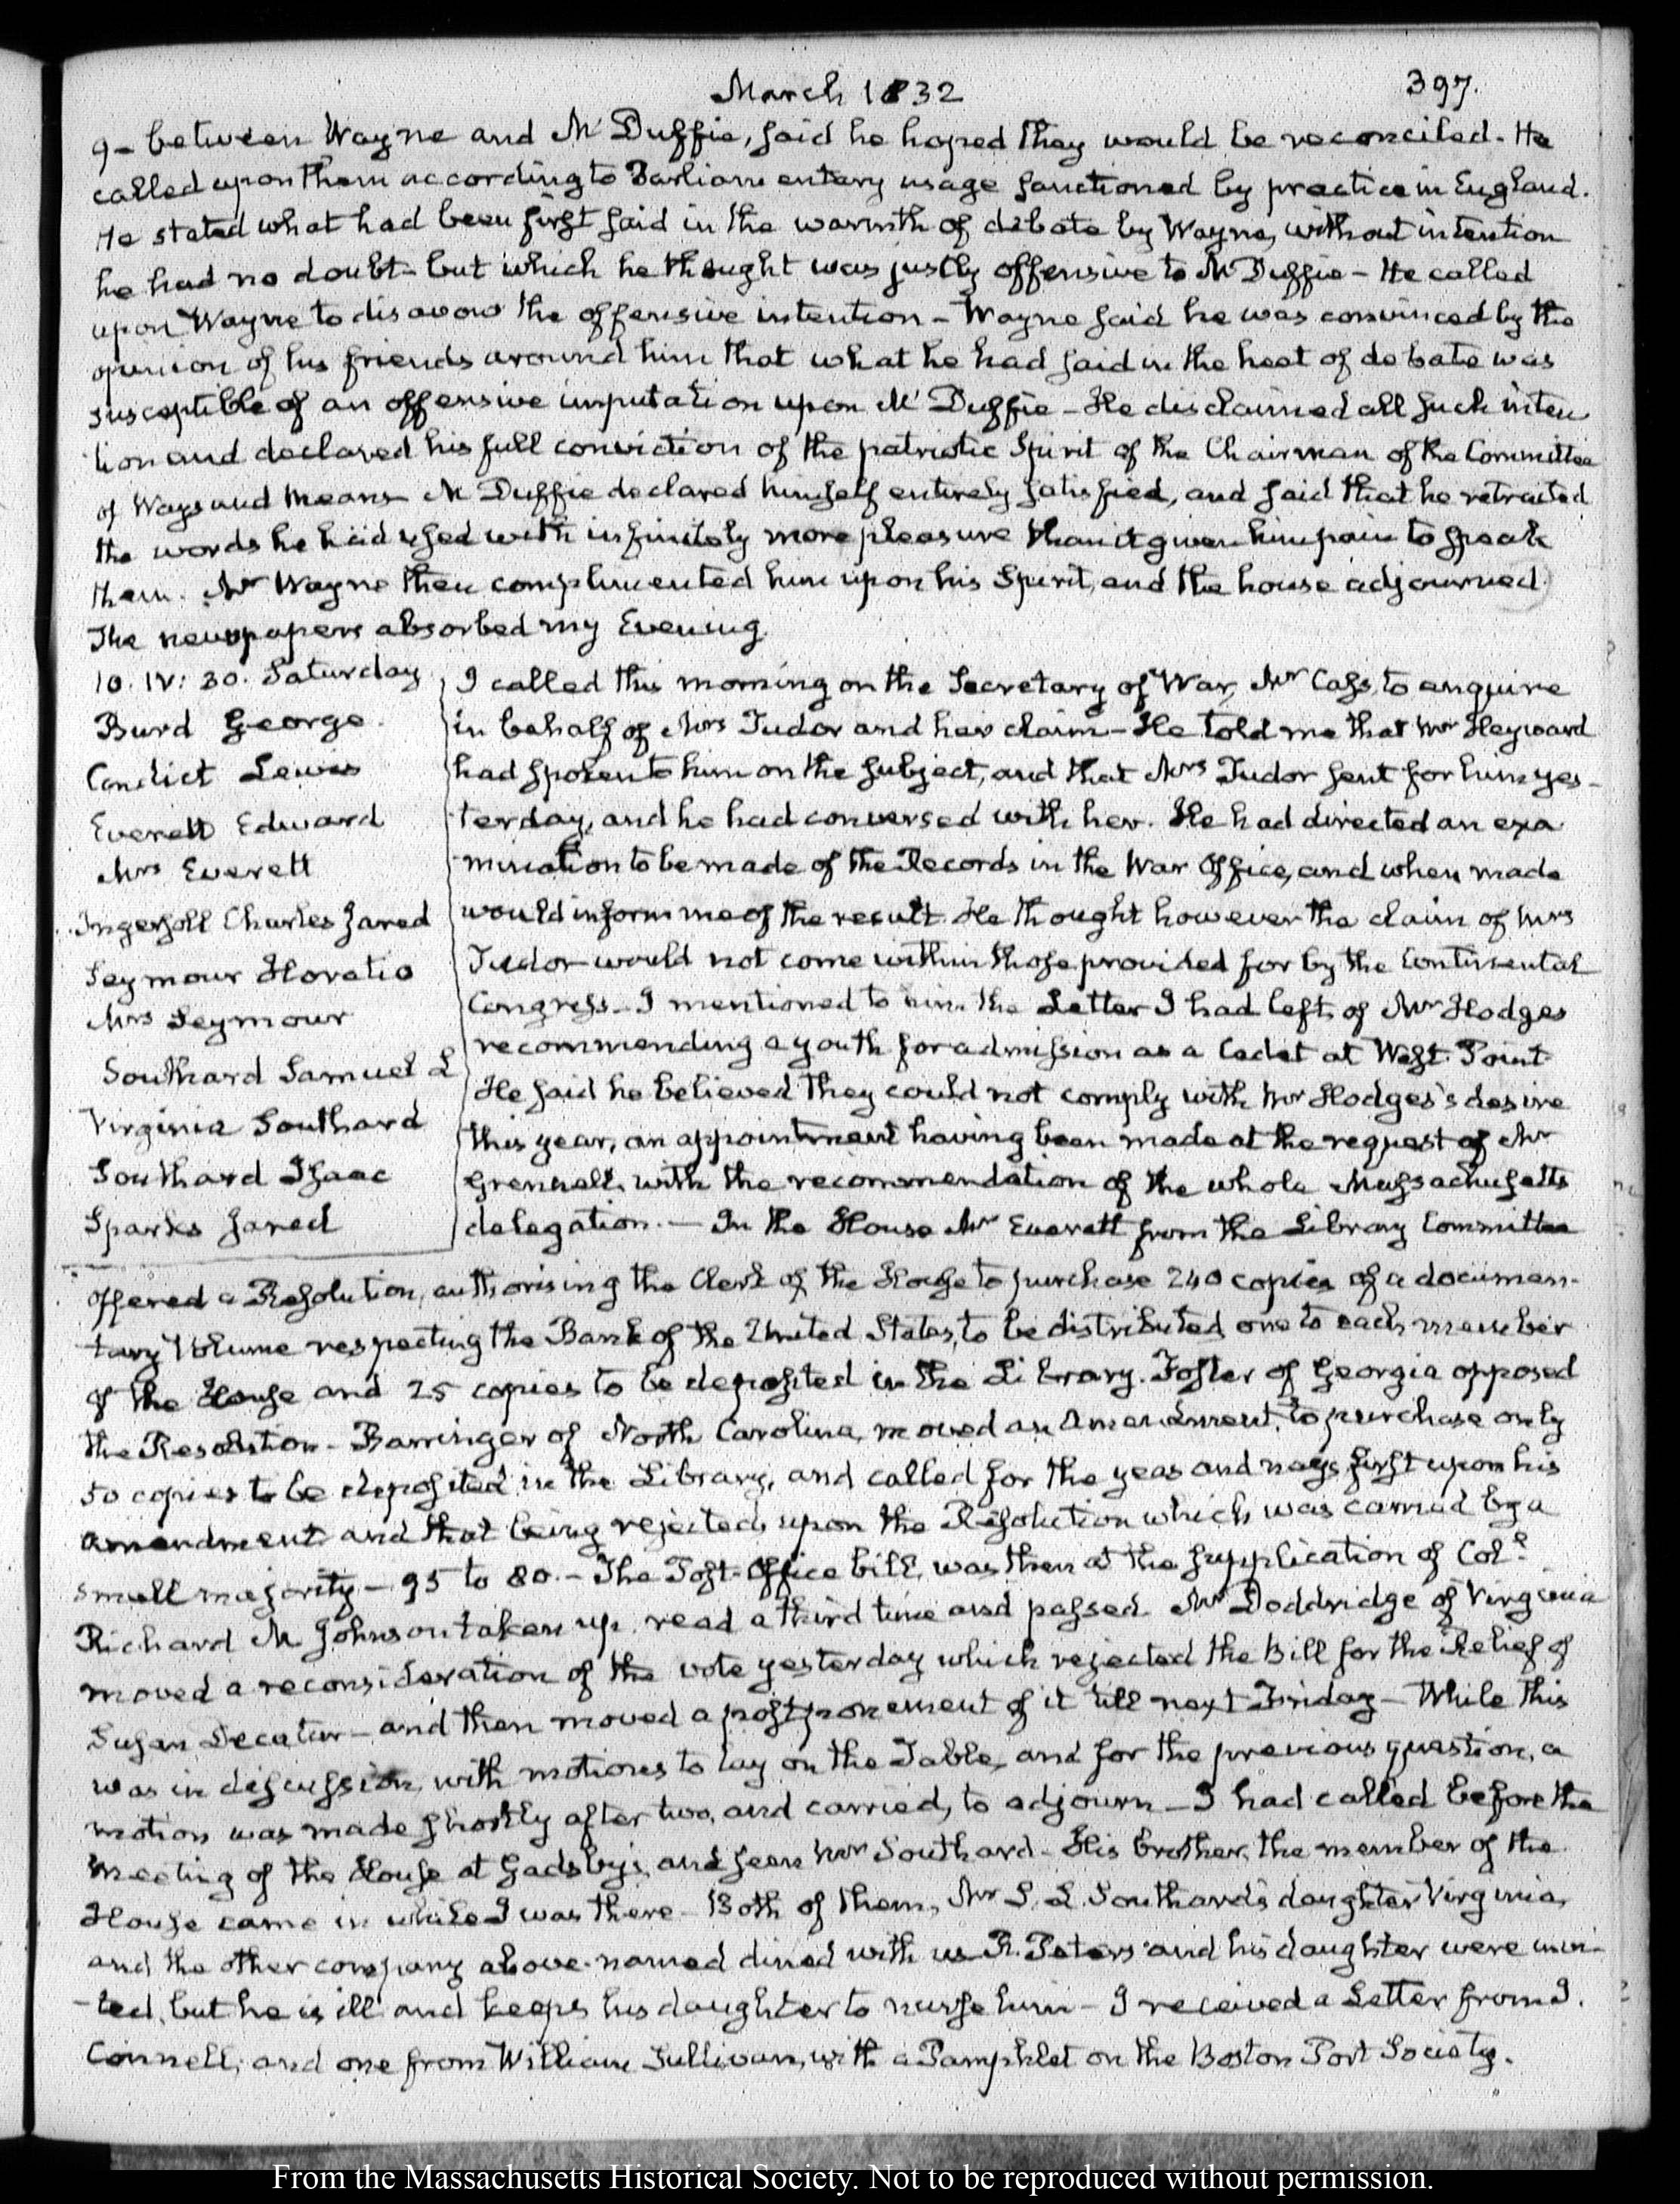 March 1832
397.
9- between Wayne and McDuffie, said he hoped they would be reconciled. He
called upon them according to Parliamentary usage sanctioned by practice in England.
He stated what had been first said in the warmth of debate by Wayne, without intention
he had no doubt- but which he thought was justly offensive to McDuffie - He called
upon Wayne to disavow the offensive intention - Wayne said he was convinced by the
opinion of his friends around him that what he had said in the heat of debate was
susceptible of an offensive imputation upon McDuffie - He disclaimed all such inten
tion and declared his full conviction of the patriotic Spirit of the Chairman of the Committee
of Ways and Means - McDuffie declared himself entirely satisfied, and said that he retracted
the words he had used with infinitely more pleasure than it given him pain to speak
them. Mr Wayne then complimented him upon his Spirit, and the house adjourned.
The newspapers absorbed my Evening.
10. IV: 30. Saturday
Burd George.
Condict Lewis
Everett Edward
Mrs Everett
Ingersoll Charles Jared
Seymour Horatio
Mrs Seymour
Southard Samuel L
Virginia Southard
Southard Isaac
Sparks Jared
I called this morning on the Secretary of War, Mr Cass, to enquire
in behalf of Mrs Tudor and her claim - He told me that Mr Heyward
had spoken to him on the subject, and that Mrs Tudor sent for him yes-
terday, and he had conversed with her. He had directed an exa
mination to be made of the Records in the War Office, and when made
would inform me of the result. He thought however the claim of Mrs
Tudor would not come within those provided for by the Continental
Congress - I mentioned to him the Letter I had left, of Mr Hodges
recommending a youth for admission as a Cadet at West-Point
He said he believed they could not comply with Mr Hodges's desire
this year, an appointment having been made at the request of Mr
Grennell, with the recommendation of the whole Massachusetts
delegation. - In the House Mr Everett from the Library Committee
offered a Resolution, authorising the Clerk of the House to purchase 240 copies of a documen-
tary Volume respecting the Bank of the United States, to be distributed one to each member
of the House and 25 copies to be deposited in the Library. Foster of Georgia opposed
the Resolution - Barringer of North Carolina, moved an Amendment, to purchase only
50 copies to be deposited in the Library, and called for the yeas and nays first upon his
amendment and that being rejected, upon the Resolution which was carried by a
small majority - 95 to 80. - The Post-Office bill, was then at the supplication of Col.
Richard M Johnson taken up, read a third time and passed. Mr Doddridge of Virginia
moved a reconsideration of the vote yesterday which rejected the Bill for the Relief of
Susan Decatur - and then moved a postponement of it till next Friday - While this
was in discussion, with motions to lay on the Table, and for the previous question, a
motion was made shortly after two, and carried, to adjourn - I had called before the
meeting of the House at Gadsby's, and seen Mr Southard - His brother, the member of the
House came in while I was there - Both of them, Mr S. L. Southard's daughter Virginia,
and the other company above-named dined with us. R. Peters and his daughter were invi-
-ted, but he is ill and keeps his daughter to nurse him - I received a Letter from J.
Connell, and one from William Sullivan, with a Pamphlet on the Boston Port Society.
From the Massachusetts Historical Society. Not to be reproduced without permission.